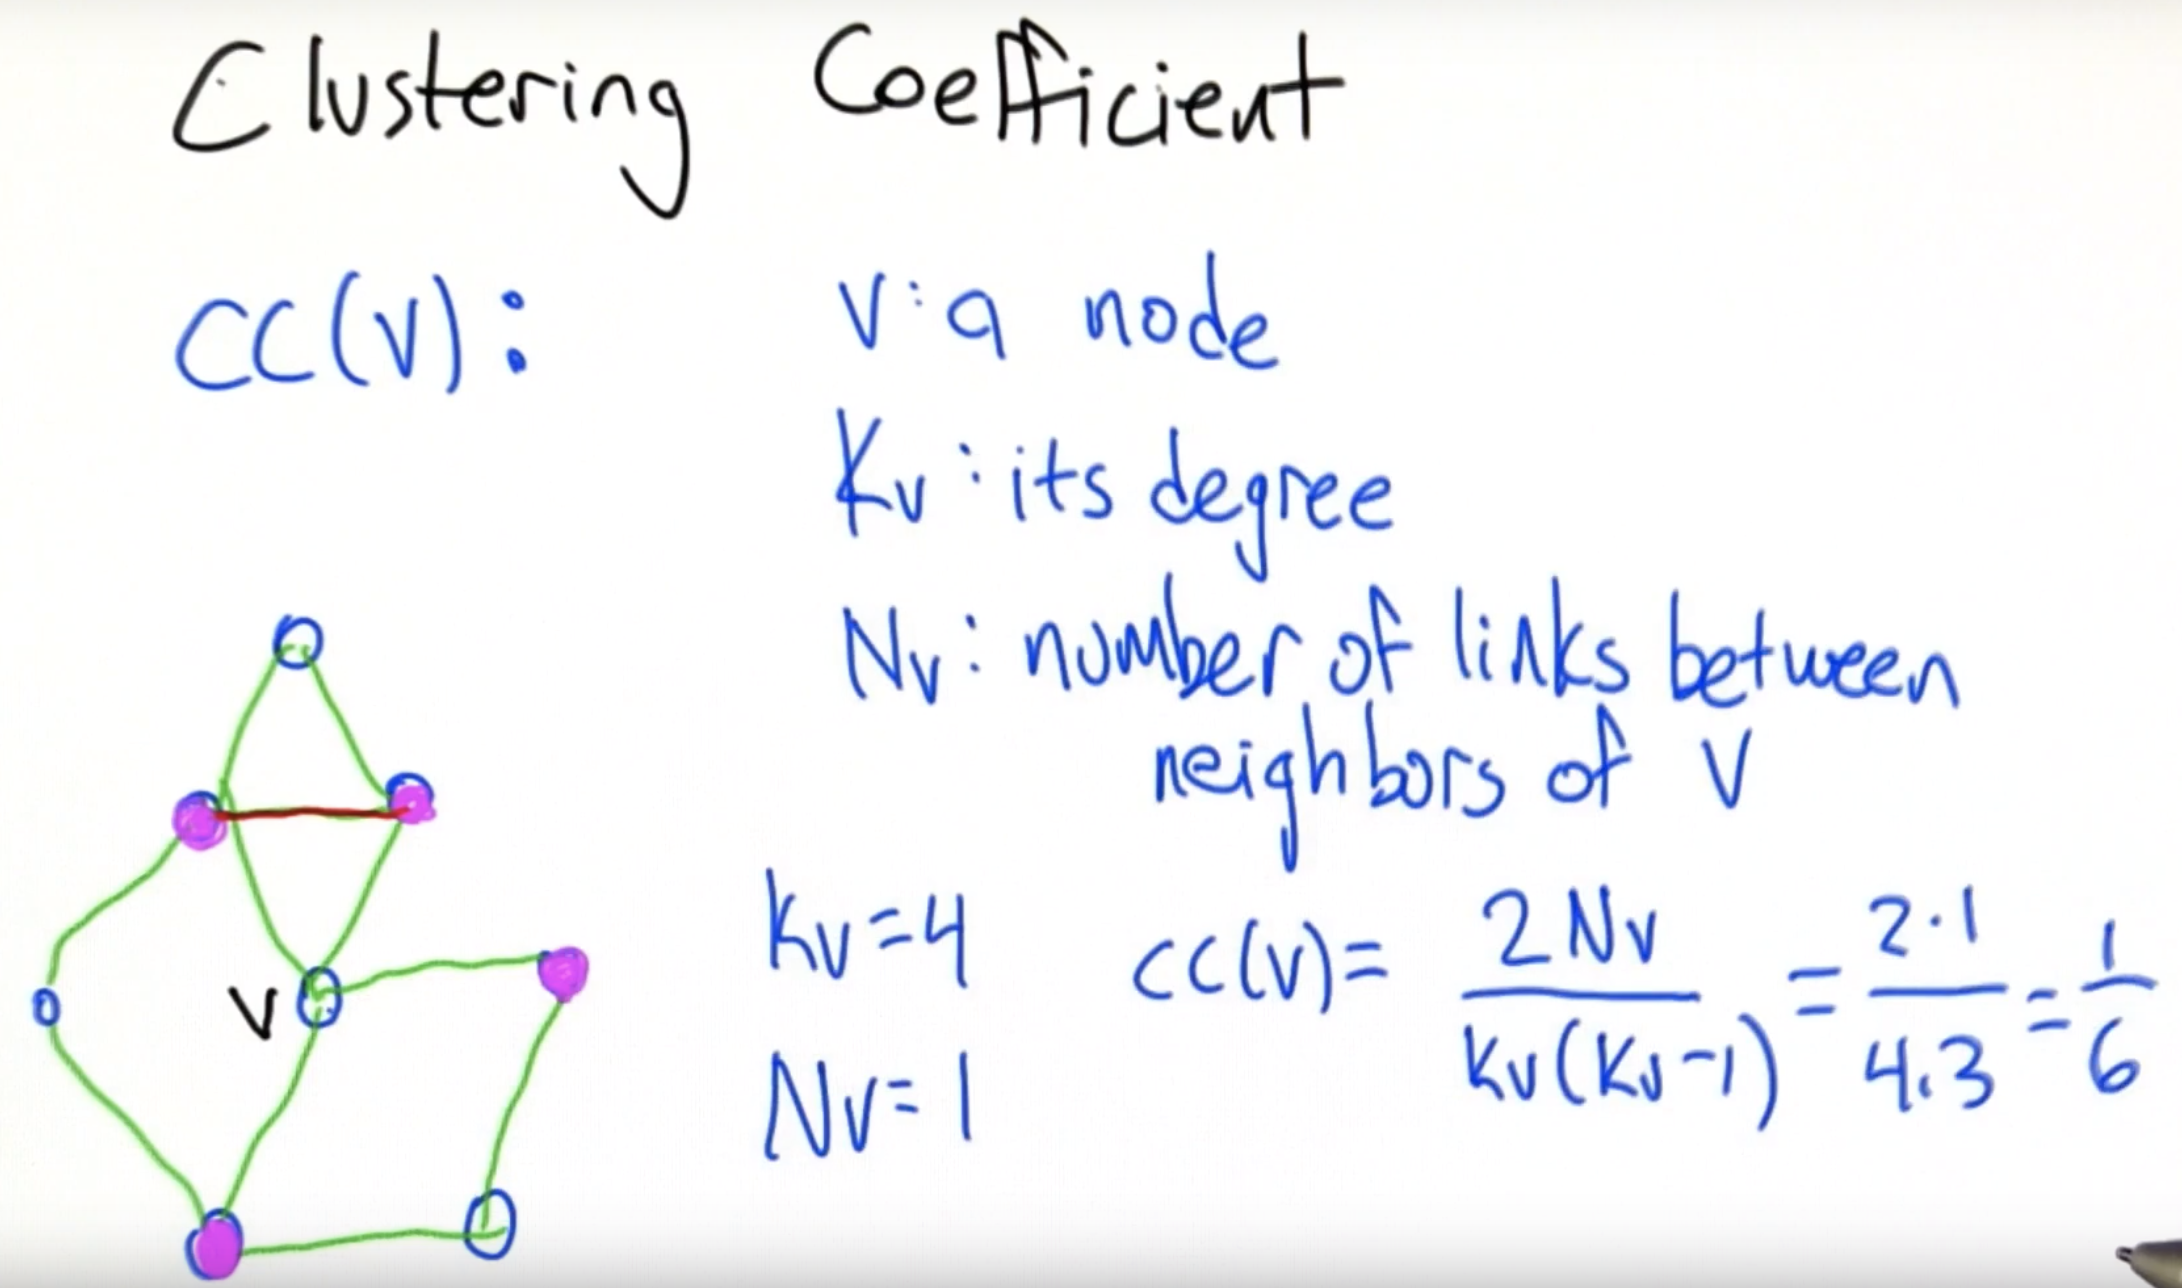 Clustering Coefficient
CC(V):
V: a node
Kv: its degree
Nv: number of links between
neighbors of V
V
Kv=4
Nv=1
CC(V)= 2Nv / Kv(Kv-1) = 2·1 / 4·3 = 1/6